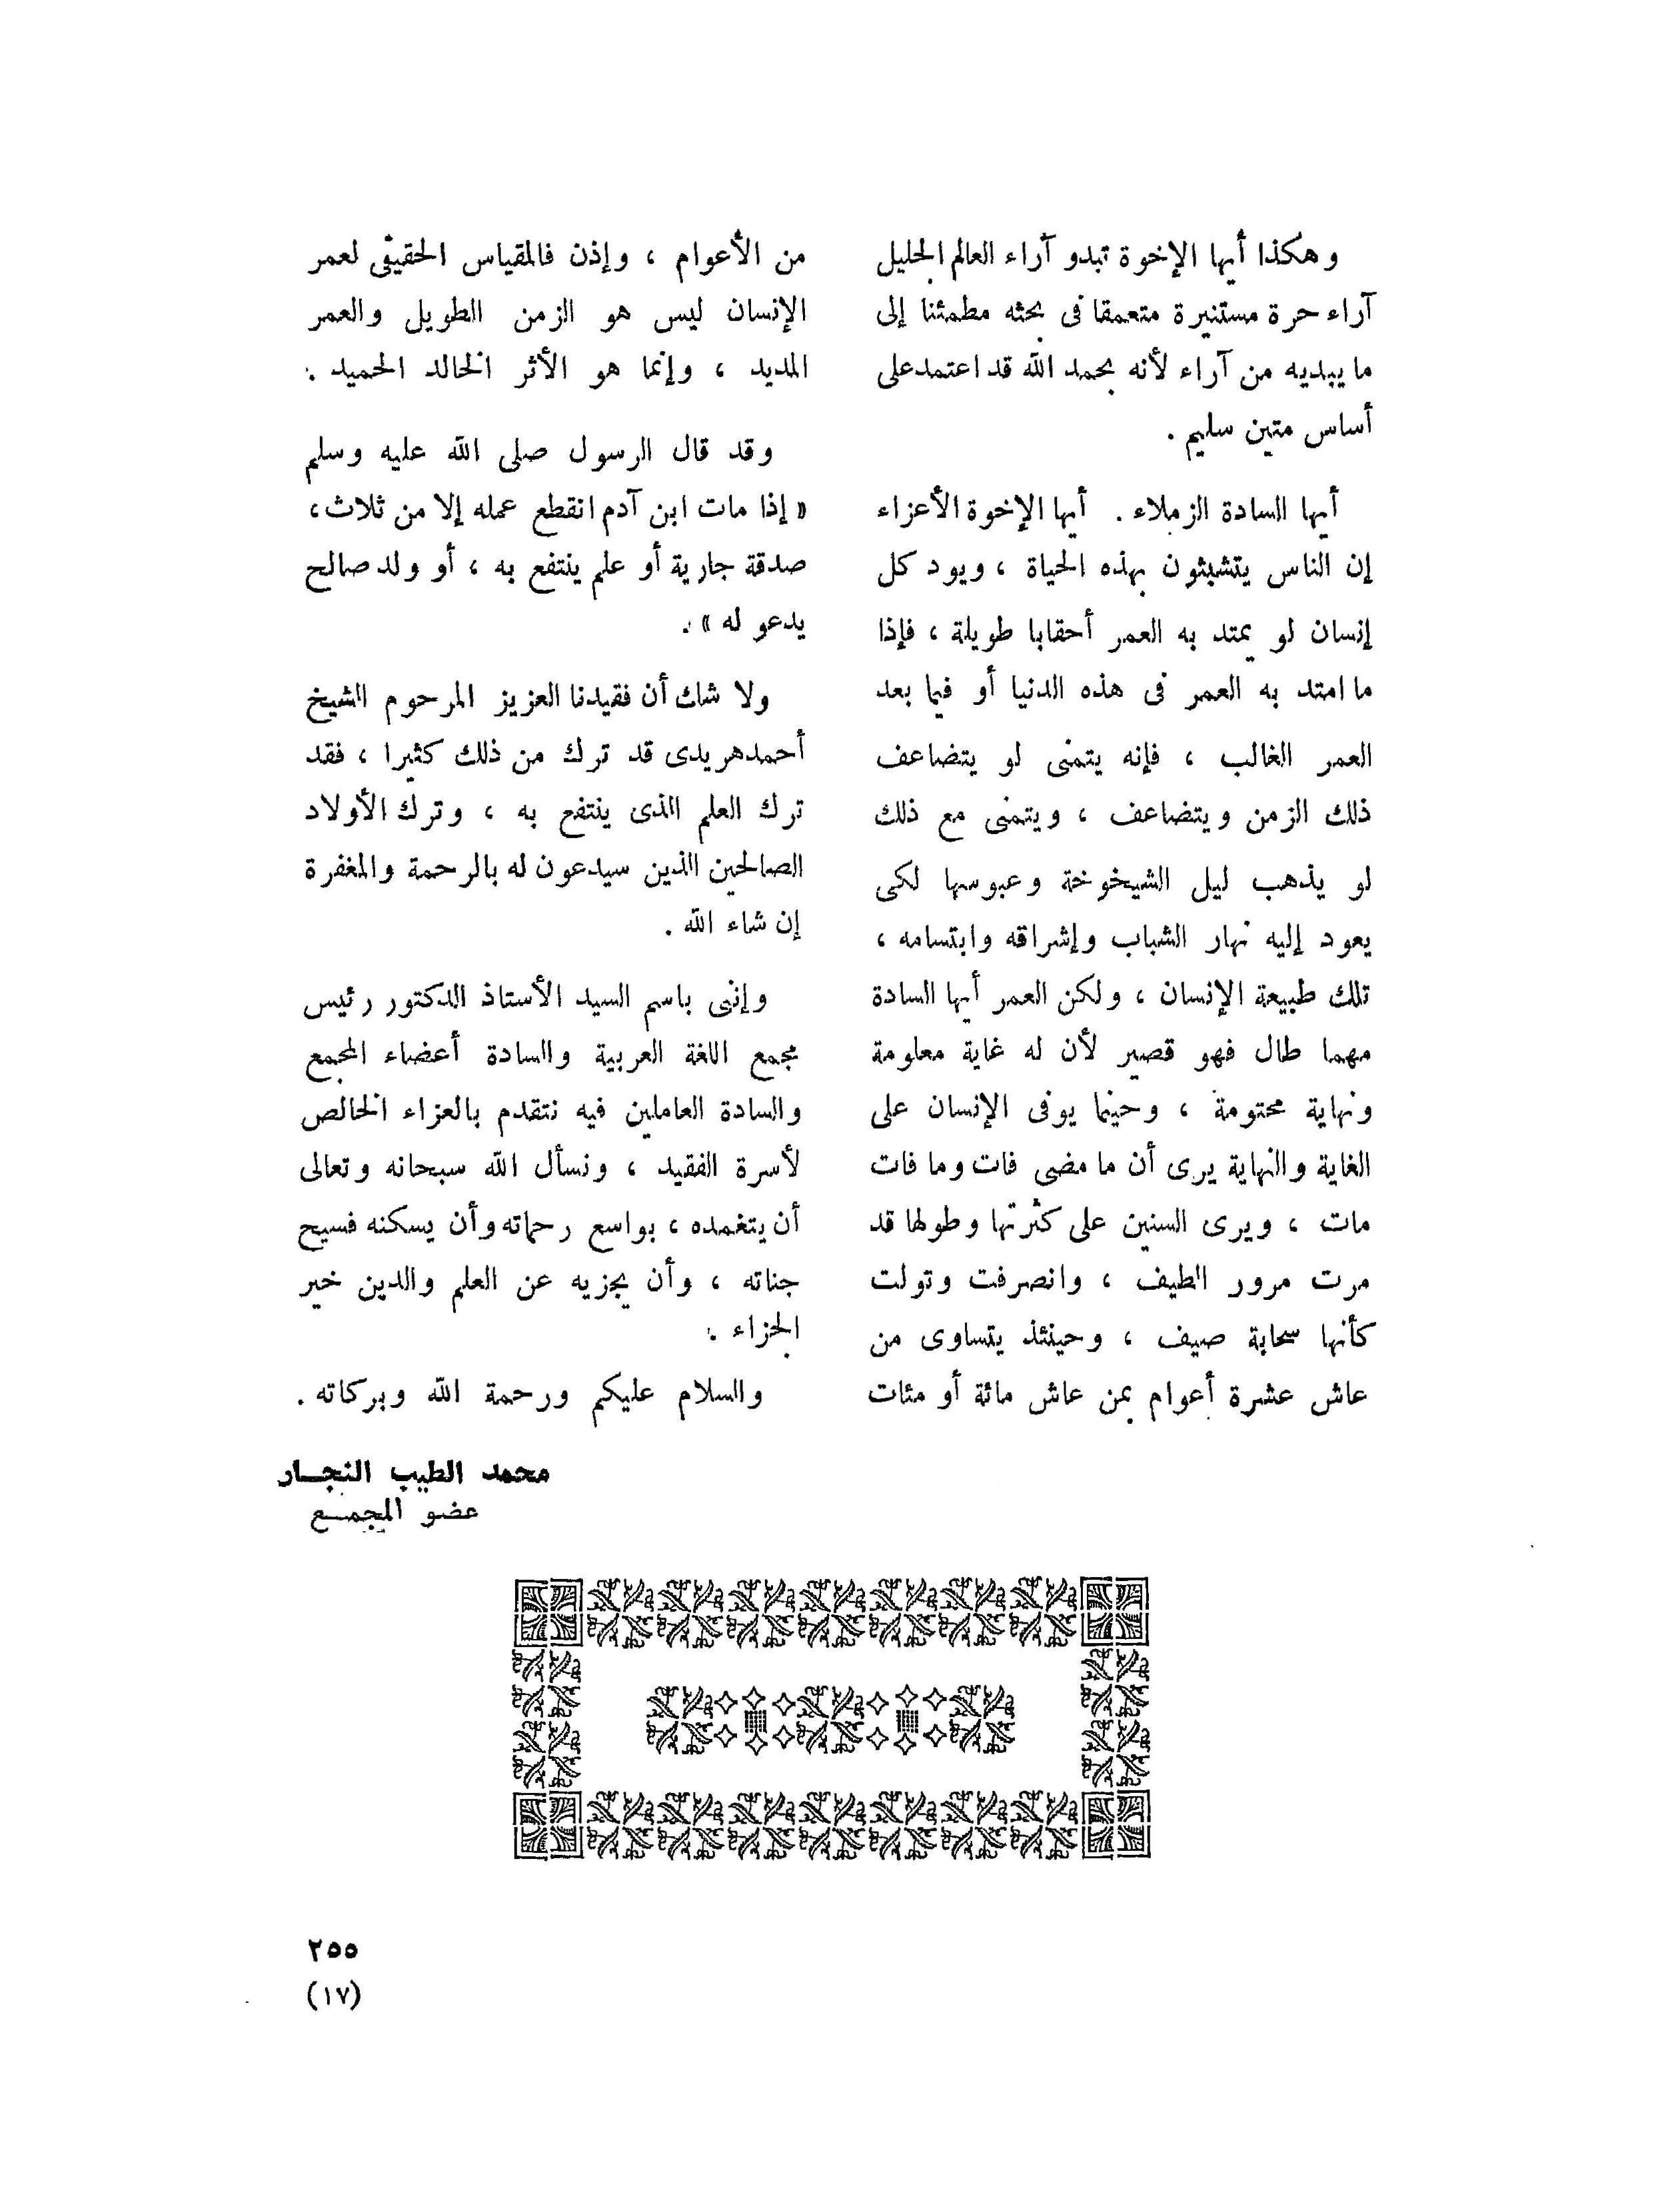 وهكذا أيها الإخوة تبدو آراء العالم الجليل
آراء حرة مستنيرة متعمقا فى بحثه مطمئنا إلى
ما يبديه من آراء لأنه بحمد الله قد اعتمد على
أساس متين سليم .
أيها السادة الزملاء . أيها الإخوة الأعزاء
إن الناس يتشبثون بهذه الحياة ، ويود كل
إنسان لو يمتد به العمر أحقابا طويلة ، فإذا
ما امتد به العمر فى هذه الدنيا أو فيما بعد
العمر الغالب ، فإنه يتمنى لو يتضاعف
ذلك الزمن ويتضاعف ، ويتمنى مع ذلك
لو يذهب ليل الشيخوخة وعبوسها لكى
يعود إليه نهار الشباب وإشراقه وابتسامه ،
تلك طبيعة الإنسان ، ولكن العمر أيها السادة
مهما طال فهو قصير لأن له غاية معلومة
ونهاية محتومة ، وحينما يوفى الإنسان على
الغاية والنهاية يرى أن ما مضى فات وما فات
مات ، ويرى السنين على كثرتها وطولها قد
مرت مرور الطيف ، وانصرفت وتولت
كأنها سحابة صيف ، وحينئذ يتساوى من
عاش عشرة أعوام بمن عاش مائة أو مئات
من الأعوام ، وإذن فالمقياس الحقيقى لعمر
الإنسان ليس هو الزمن الطويل والعمر
المديد ، وإنما هو الأثر الخالد الحميد .
وقد قال الرسول صلى الله عليه وسلم
« إذا مات ابن آدم انقطع عمله إلا من ثلاث ،
صدقة جارية أو علم ينتفع به ، أو ولد صالح
يدعو له » .
ولا شك أن فقيدنا العزيز المرحوم الشيخ
أحمد هريدى قد ترك من ذلك كثيرا ، فقد
ترك العلم الذى ينتفع به ، وترك الأولاد
الصالحين الذين سيدعون له بالرحمة والمغفرة
إن شاء الله .
وإنى باسم السيد الأستاذ الدكتور رئيس
مجمع اللغة العربية والسادة أعضاء المجمع
والسادة العاملين فيه نتقدم بالعزاء الخالص
لأسرة الفقيد ، ونسأل الله سبحانه وتعالى
أن يتغمده ، بواسع رحماته وأن يسكنه فسيح
جناته ، وأن يجزيه عن العلم والدين خير
الجزاء .
والسلام عليكم ورحمة الله وبركاته .
محمد الطيب النجار
عضو المجمع
٢٥٥
(١٧)